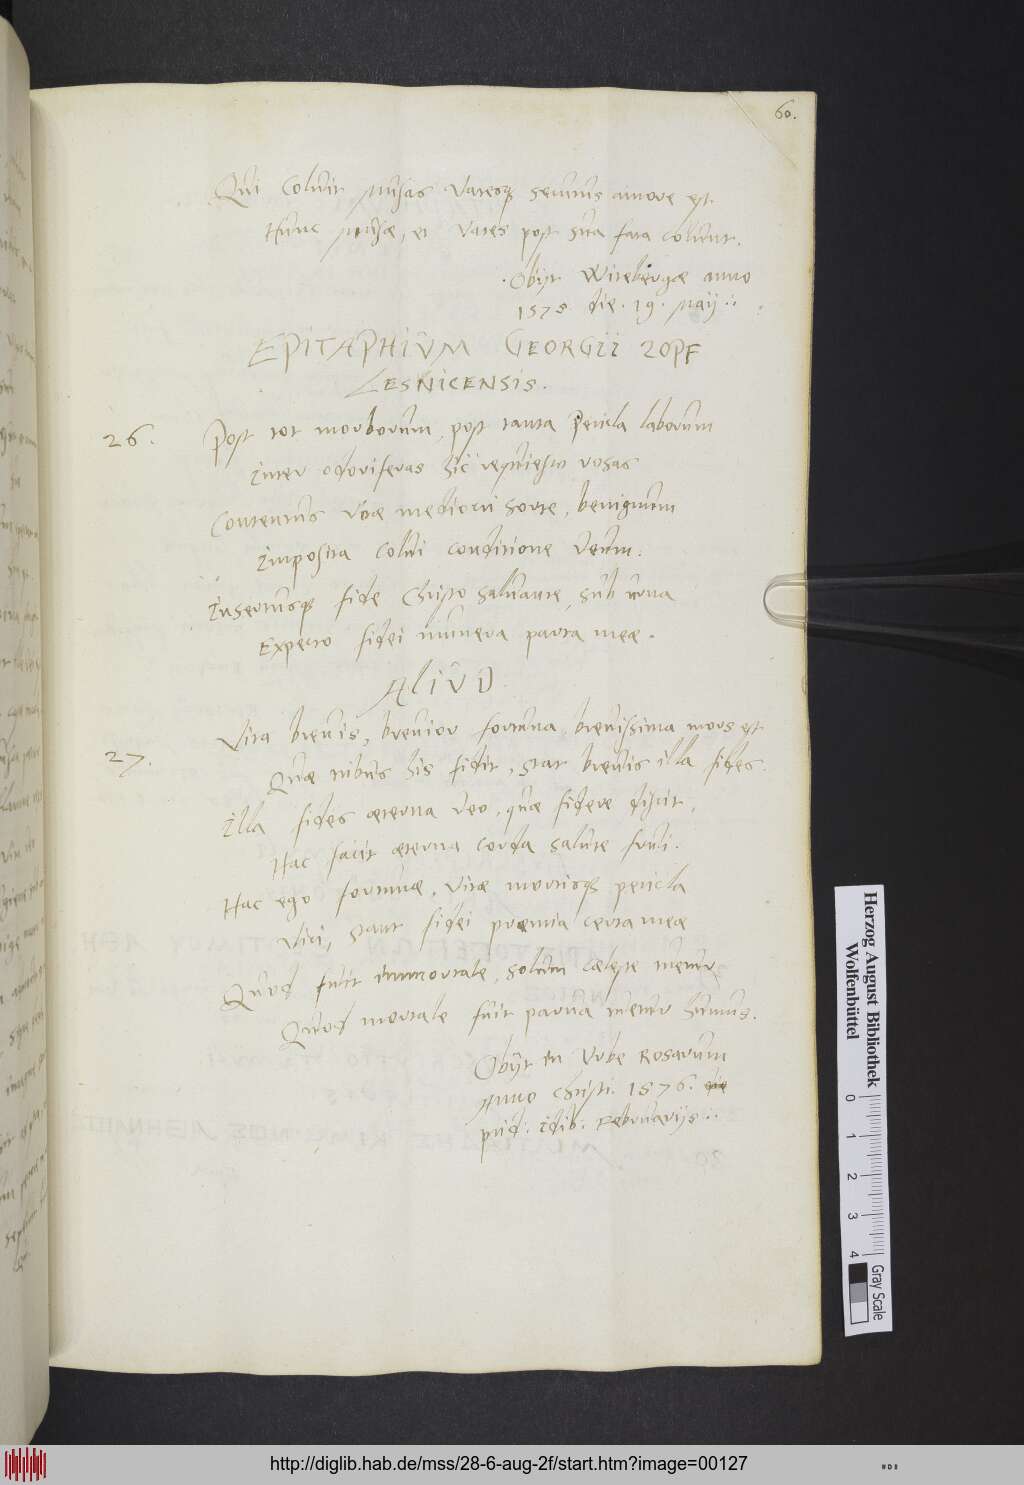 60.
Qui coluit Musas Vatesq3 secutus amore est
Hunc Musæ, et Vates post sua fata colunt.
Obijt Witebergæ anno
1575. die. 19. Maij
EPITAPHIUM GEORGII ZOPF
LESNICENSIS.
26. Post tot morborum, post tanta pericla laborum
Inter odoriferas hic requiesco rosas
Contentus vitæ mediocri sorte, benignum
Imposita colui conditione Deum.
Insertusq3 fide Christo salvante, sub urna
Expecto fidei munera parta meæ.
ALIUD
27. Vita brevis, brevior fortuna, brevissima mors est
Quæ tribus his fidit, stat brevis illa fides.
Illa fides æterna Deo, quæ fidere discit,
Hac facit æterna corda salute frui.
Hac ego fortunæ, vitæ mortisq3 pericla
Vici, stant fidei præmia certa meæ
Quod fuit immortale, solum cæleste tenetur
Quod mortale fuit parva tenetur humus.
Obijt in Urbe Rosarum
Anno Christi. 1576. die
prid. Idib. Februarijs
Herzog August Bibliothek
Wolfenbüttel
0 1 2 3 4
Gray Scale
http://diglib.hab.de/mss/28-6-aug-2f/start.htm?image=00127